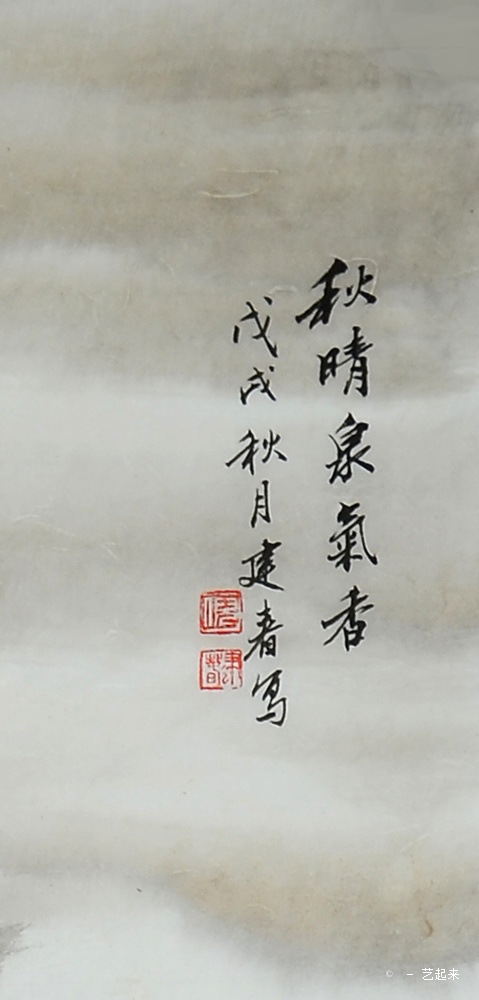 秋晴泉氣香
戊戌秋月建春写
© - 艺起来